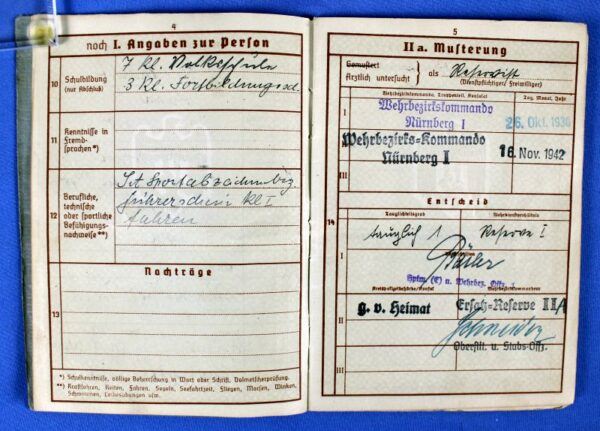 4
noch I. Angaben zur Person
10 Schulbildung
(nur Abschluß)
7 kl. Volksschule
3 kl. Fortbildungssch.
11 Kenntnisse in
Fremd-
sprachen *)
12 Berufliche,
technische
oder sportliche
Befähigungs-
nachweise **)
Führerschein Kl I
fahren
Nachträge
13
*) Schulkenntnisse, völlige Beherrschung in Wort oder Schrift, Dolmetscherprüfung.
**) Kraftfahren, Reiten, Fahren, Segeln, Seefahrtzeit, Fliegen, Morsen, Winken,
Schwimmen, Leibesübungen usw.
5
II a. Musterung
Gemustert
Ärztlich untersucht } als Reservist
(Dienstpflichtiger/ Freiwilliger)
Wehrbezirkskommando, Truppenteil, Konsulat
Tag, Monat, Jahr
I
Wehrbezirkskommando
Nürnberg I
26. Okt. 1936
II
Wehrbezirks-Kommando
Nürnberg I
16. Nov. 1942
III
Entscheid
14
Tauglichkeitsgrad
Wehrdienstverhältnis
I
tauglich 1
Reserve I
Hptm. (E) u. Wehrbez. Offz. I
II
g. v. Heimat
Ersatz-Reserve II/A
Schneider
Oberstlt. u. Stabs-Offz.
III